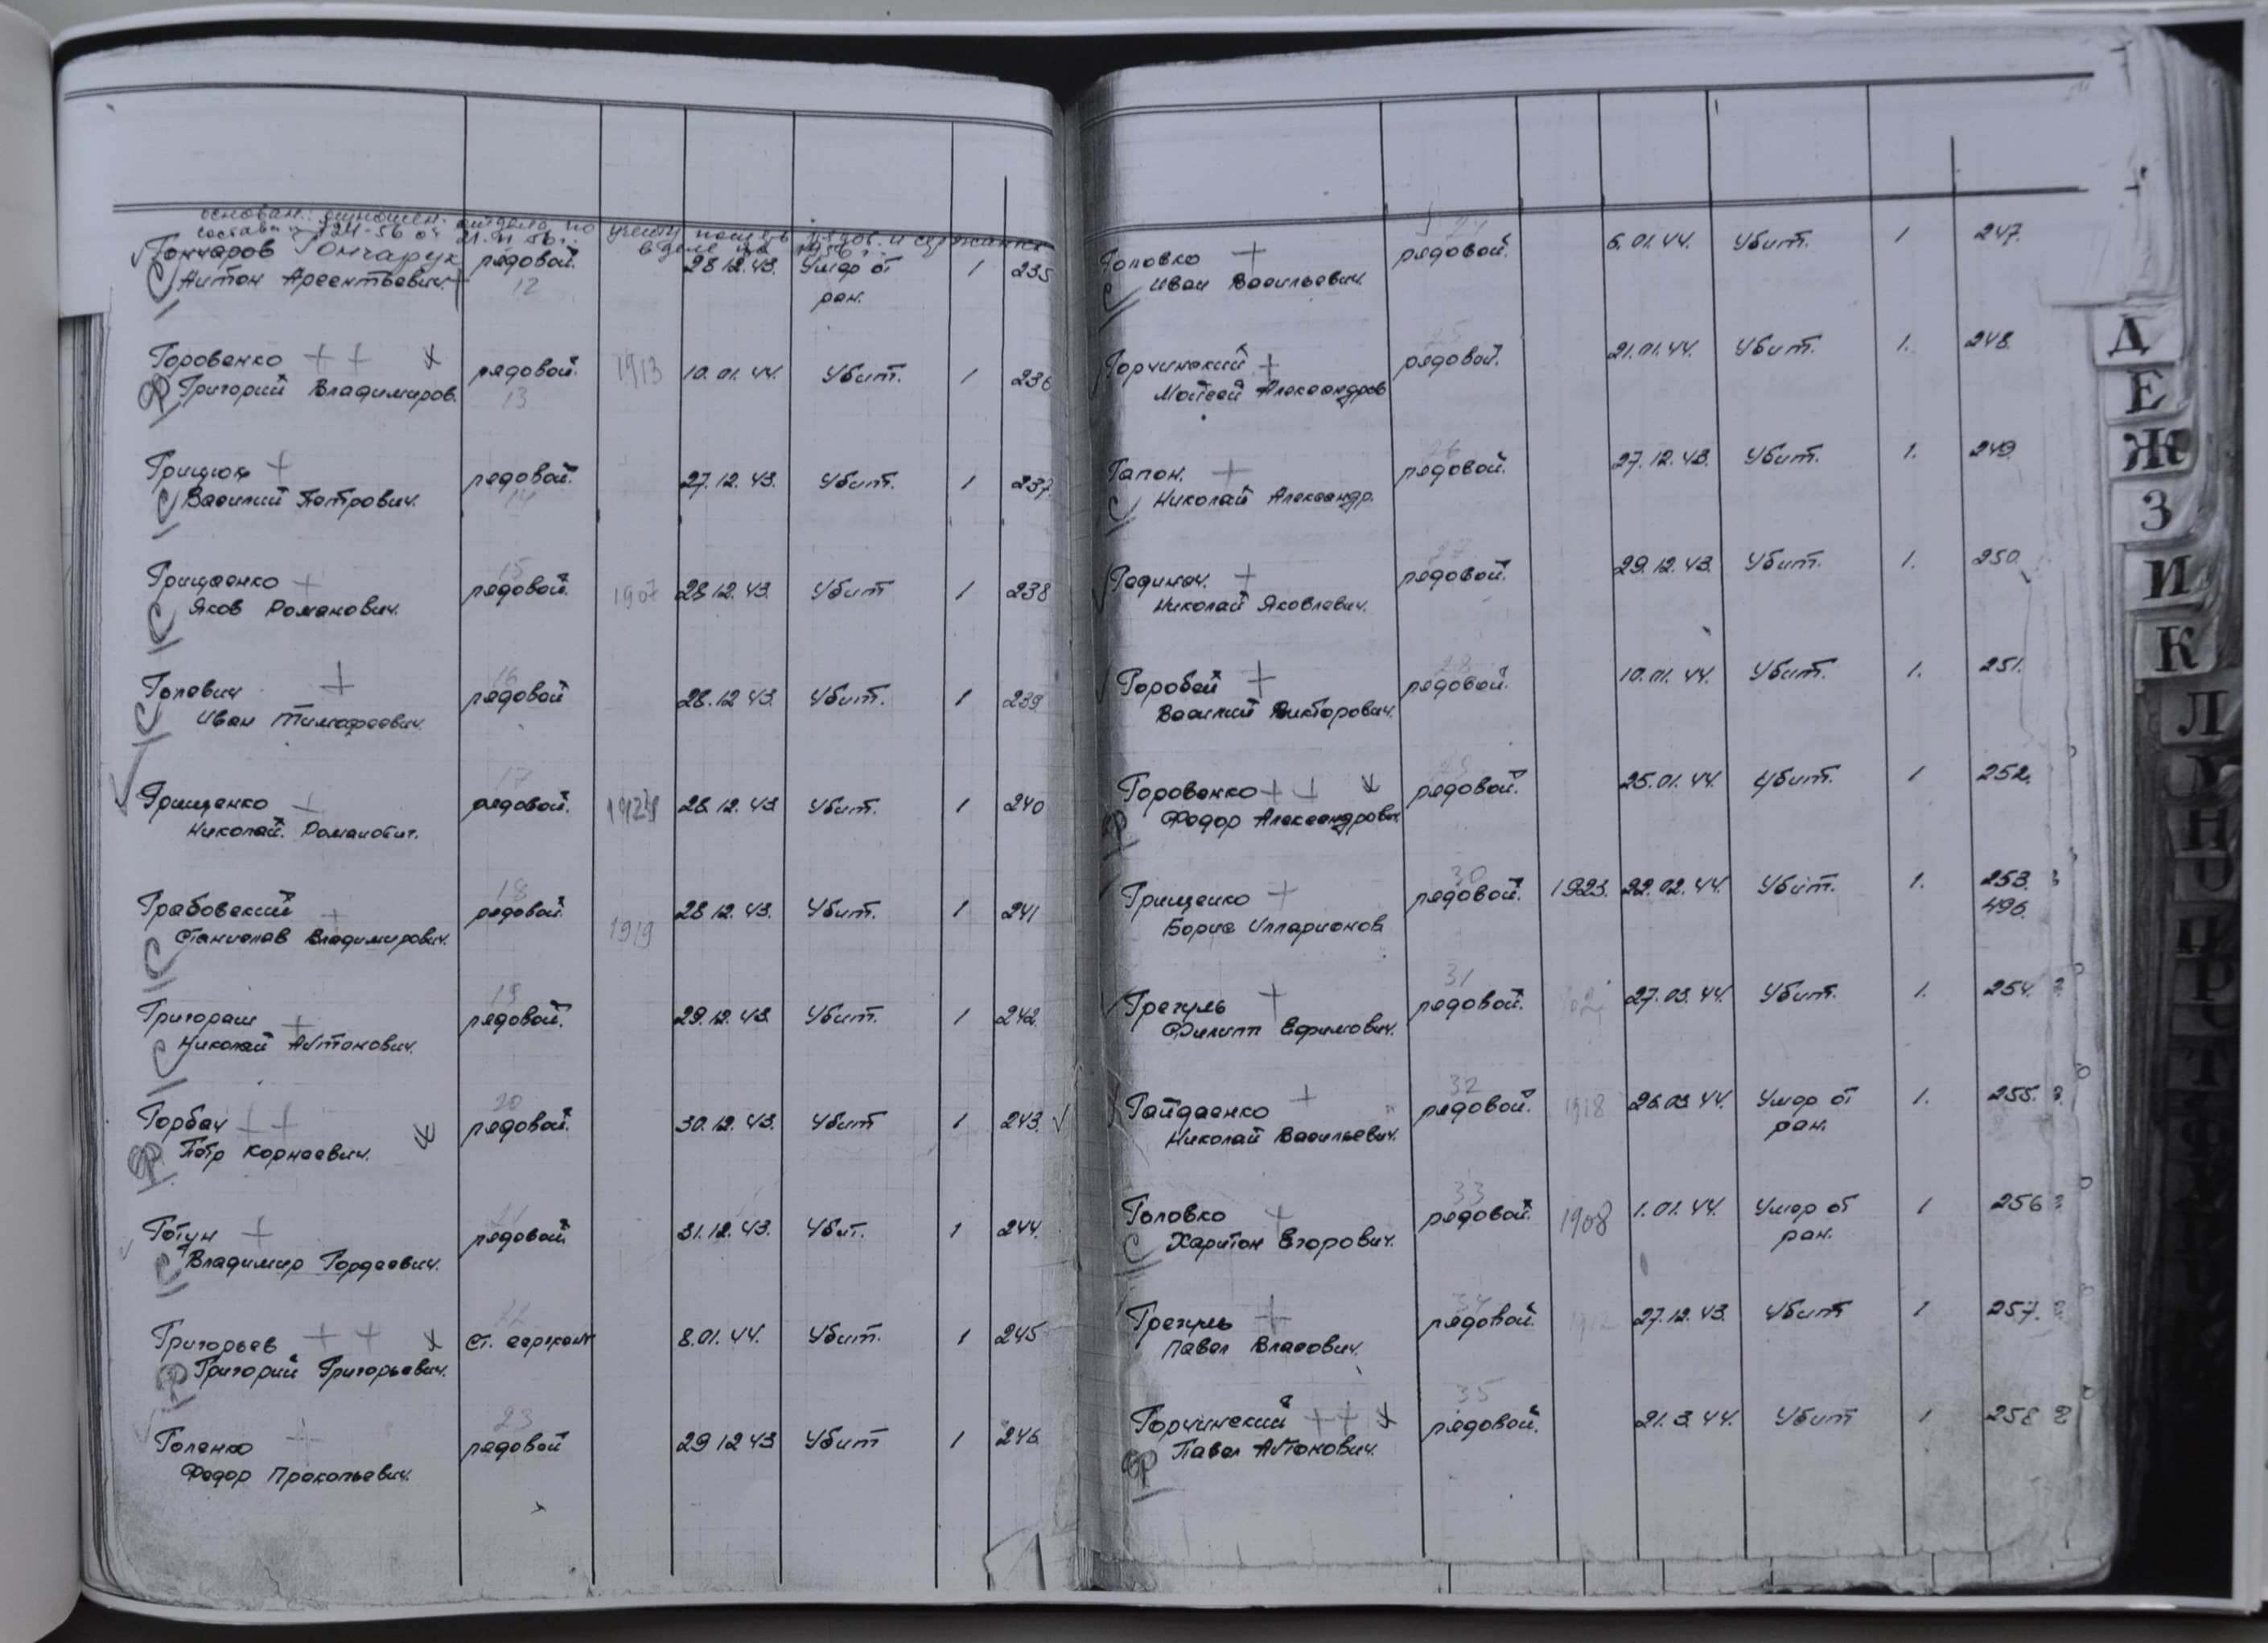 основан.: отношен. отдела по учету
состава
Гончаров Гончарук рядовой. 28.12.43. Умер от 1 235
Антон Арсентьевич 12 ран.
Горовенко + + рядовой. 1913 10.01.44. Убит. 1 236
Григорий Владимиров. 13
Грицюк + рядовой. 27.12.43. Убит. 1 237.
Василий Петрович. 14
Грищенко + 15 рядовой. 1907 28.12.43. Убит 1 238
Яков Романович.
Голевич + 16 рядовой 28.12.43. Убит. 1 239
Иван Тимофеевич.
Грищенко + 17 рядовой. 28.12.43 Убит. 1 240
Николай. Романович.
Грабовский + 18 рядовой 1919 28.12.43. Убит. 1 241
Станислав Владимирович.
Григораш + 19 рядовой. 29.12.43 Убит. 1 242.
Николай Антонович.
Горбач + + 20 рядовой. 30.12.43. Убит 1 243.
Петр Корнеевич.
Готун + 21 рядовой 31.12.43. Убит. 1 244.
Владимир Гордеевич.
Григорьев + + 22 Ст. сержант 8.01.44. Убит. 1 245
Григорий Григорьевич.
Голенко + 23 рядовой 29 12 43 Убит 1 246
Федор Прокопьевич.
Головко + 24 рядовой. 6.01.44. Убит. 1 247.
Иван Васильевич.
Горчинский + 25 рядовой. 21.01.44. Убит. 1. 248.
Моисей Александров
Гапон. + 26 рядовой. 27.12.43. Убит. 1. 249
Николай Александр.
Гединач. + 27 рядовой. 29.12.43. Убит. 1. 250.
Николай Яковлевич.
Горобей + 28 рядовой. 10.01.44. Убит. 1. 251.
Василий Викторович.
Горовенко + + 29 рядовой. 25.01.44. Убит. 1 252.
Федор Александрович
Грищенко + 30 рядовой. 1923. 22.02.44. Убит. 1. 253.
Борис Илларионов 496.
Грегуль + 31 рядовой. 27.03.44. Убит. 1. 254.
Филипп Ефимович.
Гайдаенко + 32 рядовой. 1918 26.03.44. Умер от 1. 255.
Николай Васильевич. ран.
Головко + 33 рядовой. 1908 1.01.44. Умер от 1 256
Харитон Егорович. ран.
Грегуль + 34 рядовой. 1912 27.12.43. Убит 1 257.
Павел Власович.
Горчинский + + 35 рядовой. 21.3.44. Убит 1 258
Павел Антонович.
Д
Е
Ж
З
И
К
Л
Н
О
П
Р
Т